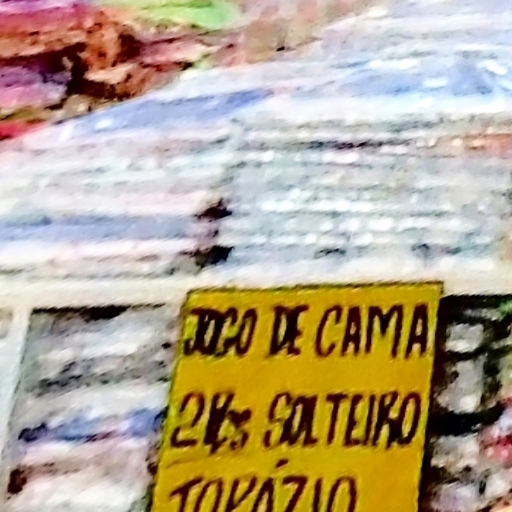 JOGO DE CAMA
2 Pçs SOLTEIRO
TOPÁZIO